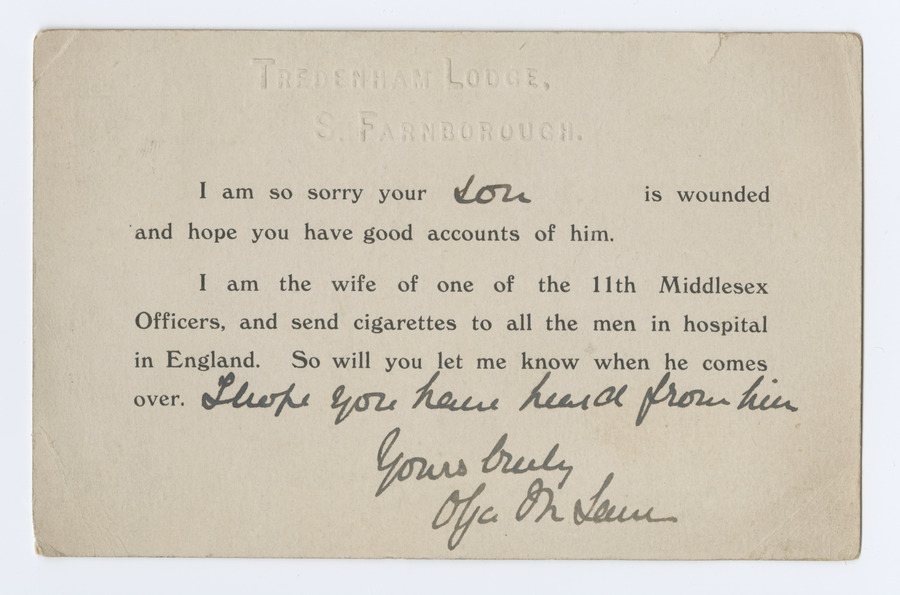 TREDENHAM LODGE,
S. FARNBOROUGH.
I am so sorry your son is wounded
and hope you have good accounts of him.
I am the wife of one of the 11th Middlesex
Officers, and send cigarettes to all the men in hospital
in England. So will you let me know when he comes
over. I hope you have heard from him
Yours truly
Olga